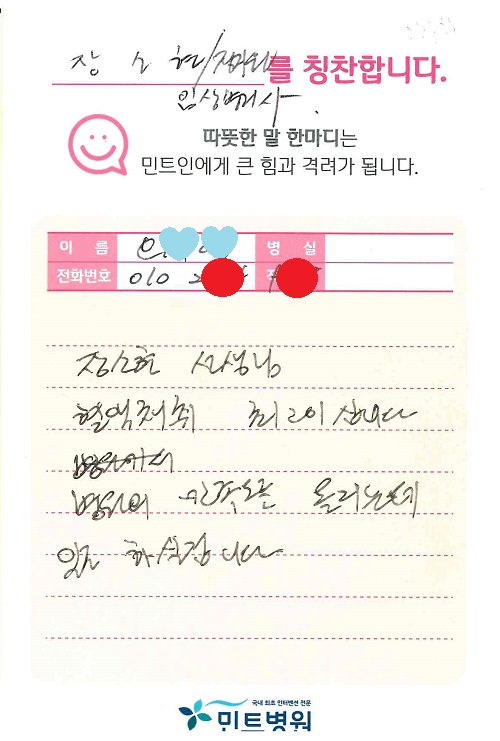 장소현/ 를 칭찬합니다.
임상병리사.
따뜻한 말 한마디는
민트인에게 큰 힘과 격려가 됩니다.
이 름 병 실
전화번호 010
장소현 선생님
혈액채취 최고이십니다
병원에서
병원의 인지도를 올리는데
일조 하실겁니다
국내 최초 인터벤션 전문
민트병원